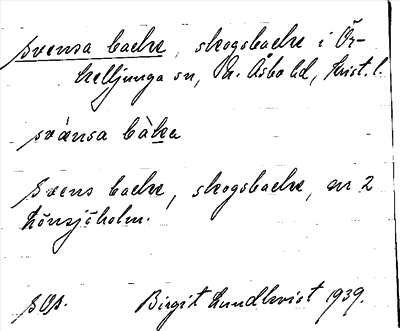 svensa backe, skogsbacke i Ör-
kelljunga sn, N. Åsbo hd, Krist. l.
svänsa bàka
Svens backe, skogsbacke, en 2
Hönsjöholm.
sOp. Birgit Lundkvist 1939.